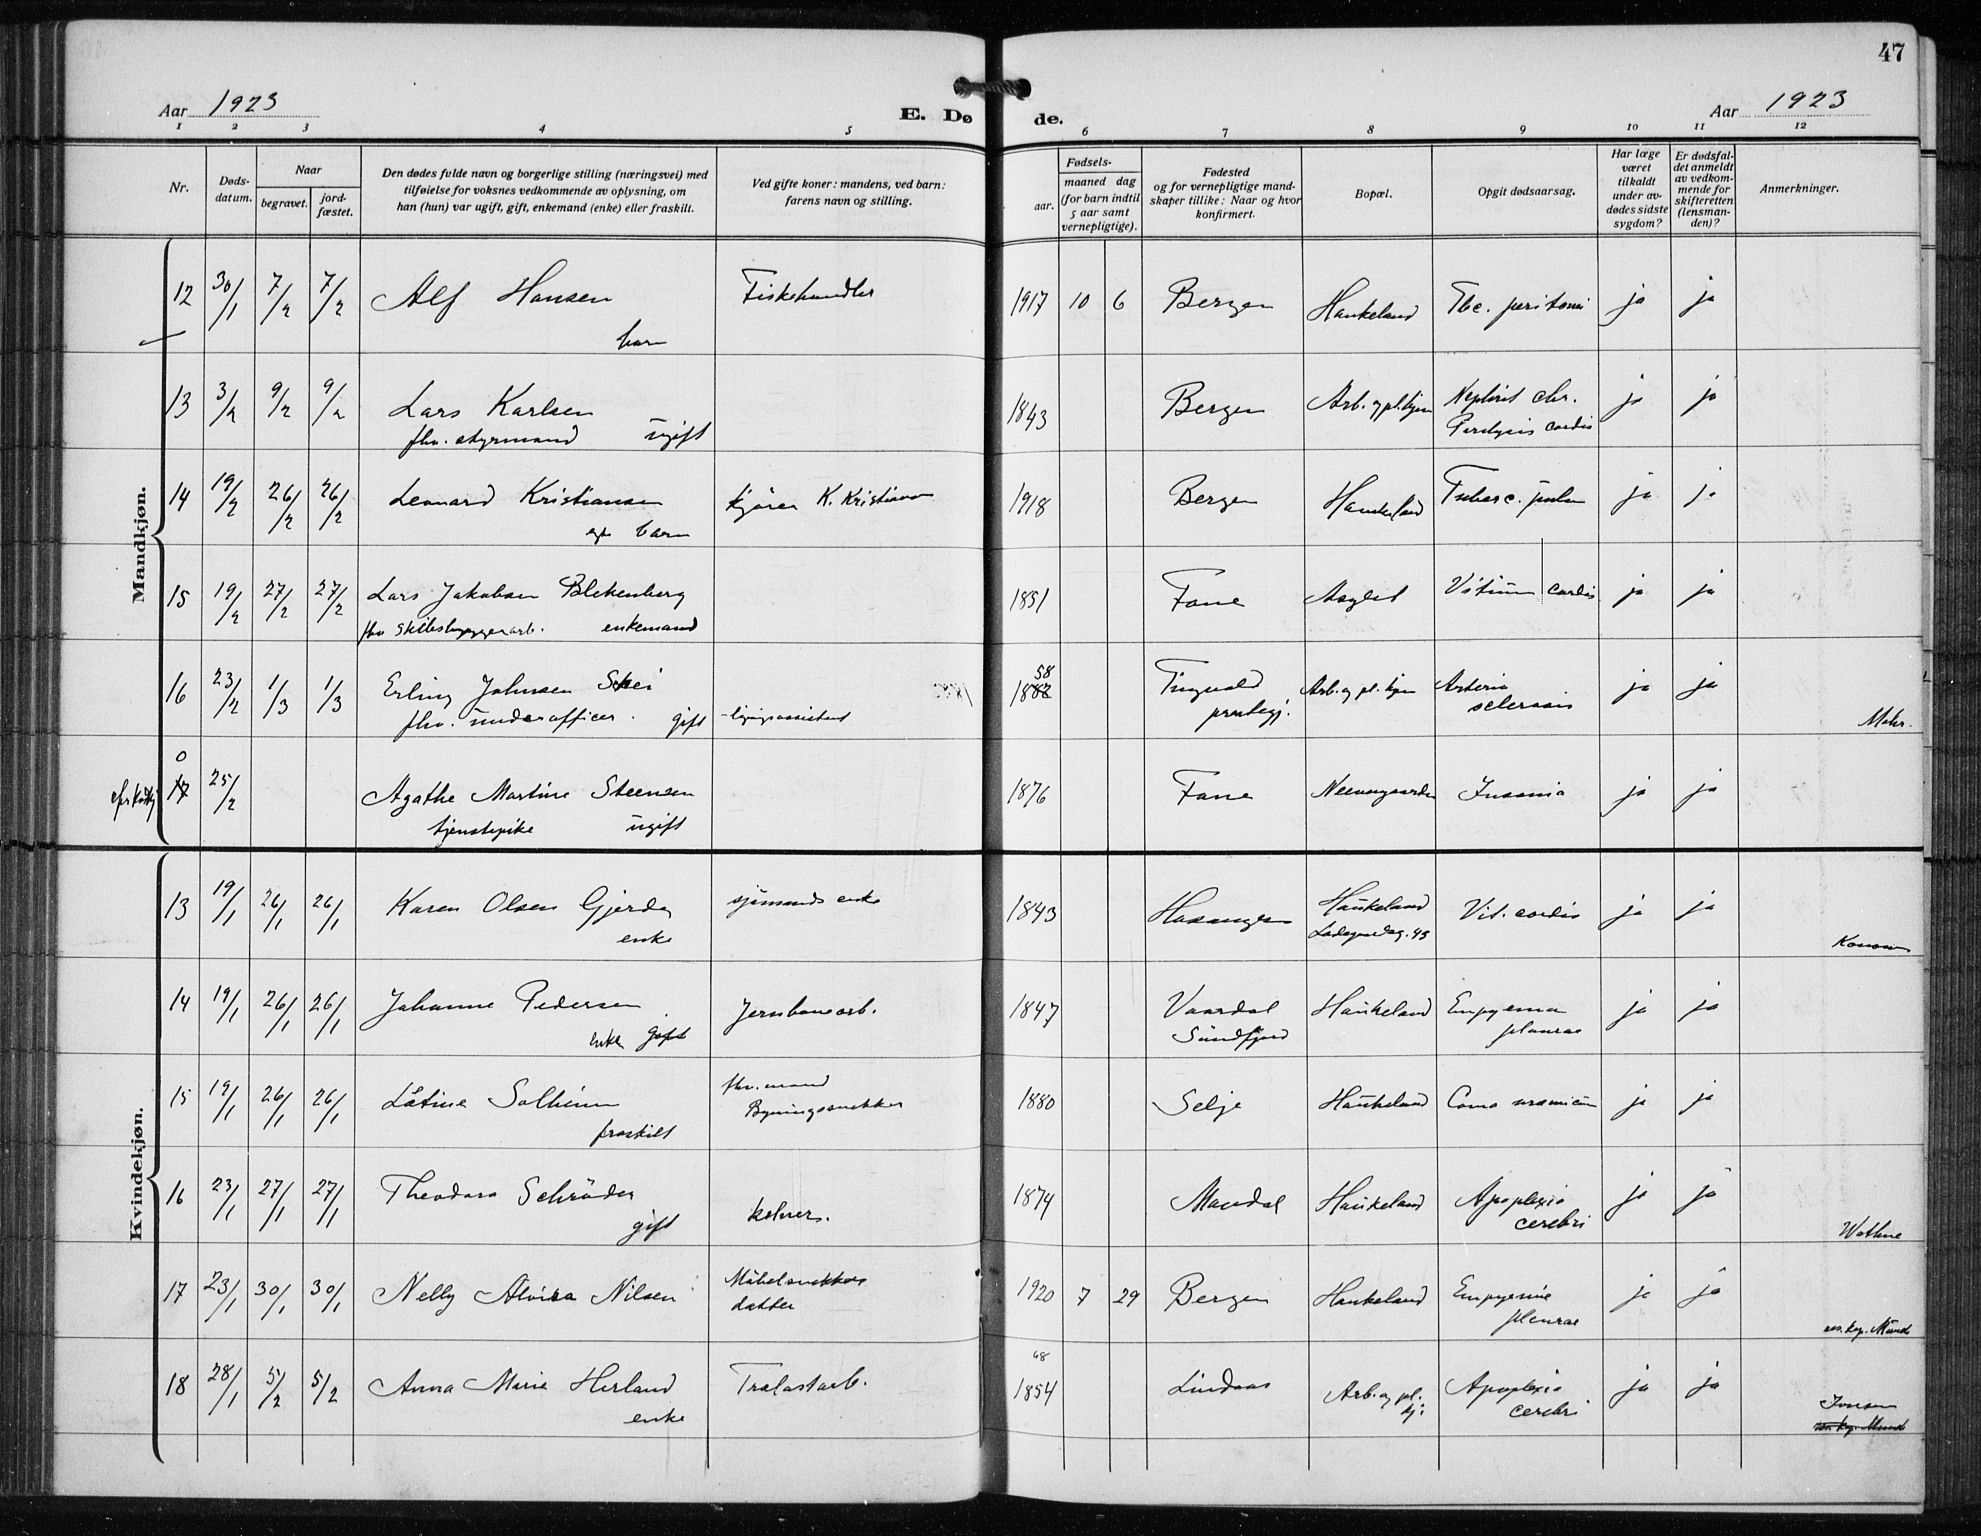 47
Aar 1923
E. Døde.
Aar 1923
1 2 3 4 5 6 7 8 9 10 11 12
Nr.
Døds-
datum.
Naar
begravet.
jord-
fæstet.
Den dødes fulde navn og borgerlige stilling (næringsvei) med
tilføielse for voksnes vedkommende av oplysning, om
han (hun) var ugift, gift, enkemand (enke) eller fraskilt.
Ved gifte koner: mandens, ved barn:
farens navn og stilling.
Fødsels-
aar.
maaned dag
(for barn indtil
5 aar samt
vernepligtige).
Fødested
og for vernepligtige mand-
skaper tillike: Naar og hvor
konfirmert.
Bopæl.
Opgit dødsaarsag.
Har læge
været
tilkaldt
under av-
dødes sidste
sygdom?
Er dødsfal-
det anmeldt
av vedkom-
mende for
skifteretten
(lensman-
den)?
Anmerkninger.
Mandkjøn.
12 30/1 7/2 7/2 Alf Hansen Fiskehandler 1917 10 6 Bergen Haukeland Tbc. peritoni ja ja
barn
13 3/2 9/2 9/2 Lars Karlsen 1843 Bergen Arb. og pl.hjem Nephrit chr. ja ja
fhv. styrmand ugift Paralysis cordis
14 19/2 26/2 26/2 Leonard Kristiansen kjører K. Kristiansen 1918 Bergen Haukeland Tuberc. pulm ja ja
egt barn
15 19/2 27/2 27/2 Lars Jakobsen Blekenberg 1851 Fane Asylet Vitium cordis ja ja
fhv skibsbyggerarb. enkemand
16 23/2 1/3 1/3 Erling Johnsen 58 1882 Tingvold Arb. og pl. hjem Arterio ja ja
fhv. underofficer. gift ligningsassistent prestegj. sclerosis Mohr.
0
17 25/2 Agathe Martine Steensen 1876 Fane Neevengaarden Insania ja ja
tjenestepike ugift
Kvindekjøn.
13 19/1 26/1 26/1 Karen Olsen Gjerde sjømands enke 1843 Haukeland Vit. cordis ja ja
enke Ladegaardsg. 45
14 19/1 26/1 26/1 Johanne Pedersen Jernbanearb. 1847 Vaardal Haukeland Empyema ja ja
enke gift Sundfjord pleurae
15 19/1 26/1 26/1 Solheim fhv. mand 1880 Selje Haukeland Coma uræmicum ja ja
fraskilt Bygningssnekker
16 23/1 27/1 27/1 Theodora Schrøder 1874 Mandal Haukeland Apoplexia ja ja
gift kelner. cerebri Wathne
17 23/1 30/1 30/1 Nelly Alvira Nilsen Møbelsnekkers 1920 7 29 Bergen Haukeland Empyema ja ja
datter pleurae res. kap. Munch
68
18 28/1 5/2 5/2 Anna Marie Herland Tralastarb. 1854 Lindaas Arb. og pl. Apoplexia ja ja
enke hj. cerebri Jonsen
res. kap. Munch